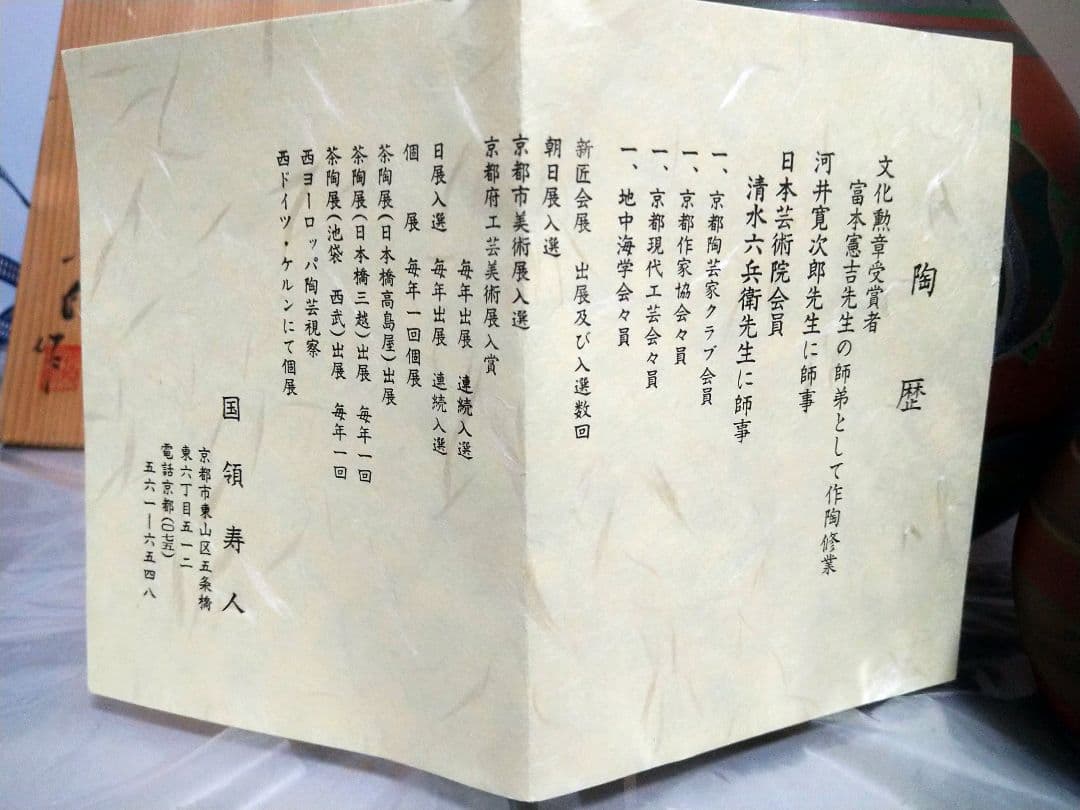 陶歴
文化勲章受賞者
富本憲吉先生の師弟として作陶修業
河井寛次郎先生に師事
日本芸術院会員
清水六兵衛先生に師事
一、京都陶芸家クラブ会員
一、京都作家協会々員
一、京都現代工芸会々員
一、地中海学会々員
新匠会展 出展及び入選数回
朝日展入選
京都市美術展入選
京都府工芸美術展入賞
毎年出展 連続入選
日展入選 毎年出展 連続入選
個展 毎年一回個展
茶陶展(日本橋高島屋)出展
茶陶展(日本橋三越)出展 毎年一回
茶陶展(池袋 西武)出展 毎年一回
西ヨーロッパ陶芸視察
西ドイツ・ケルンにて個展
国領寿人
京都市東山区五条橋
東六丁目五一二
電話京都(〇七五)
五六一ー六五四八
作